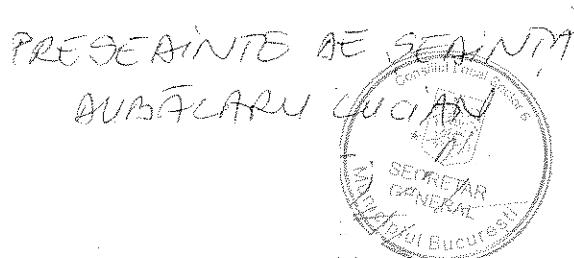 PREȘEDINTE DE ȘEDINȚĂ
DUBĂLARU LUCIAN
Consiliul Local Sector 6
SECRETAR
GENERAL
Municipiul București